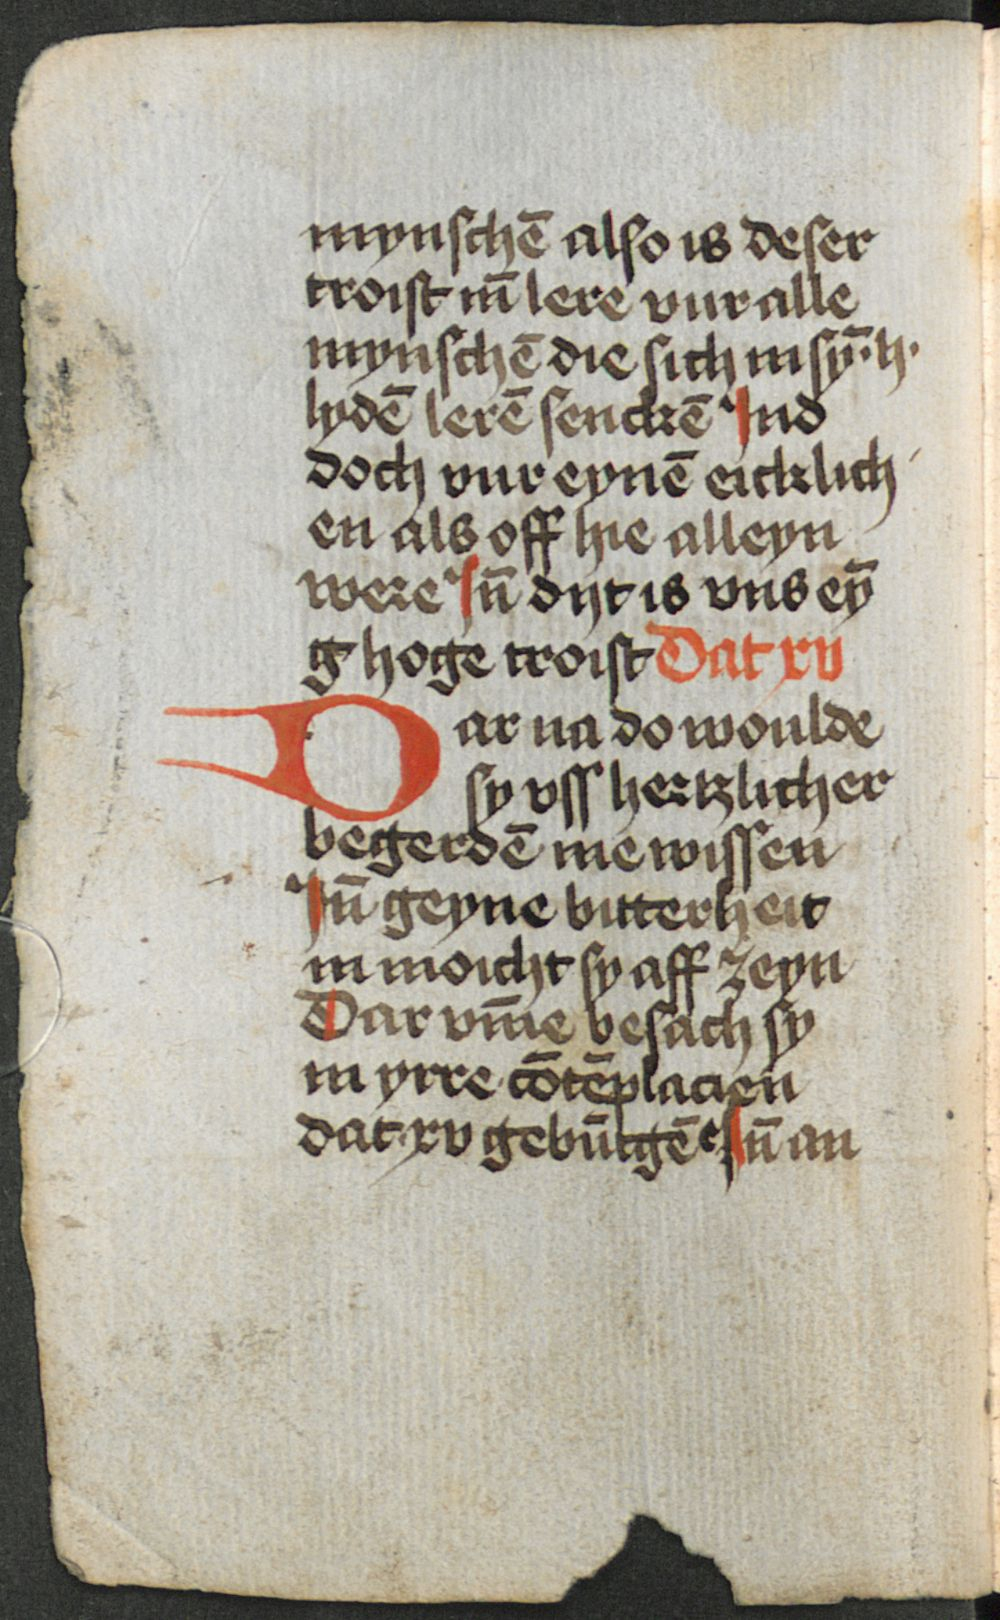 mynschē also is deser
troist uñ lere vur alle
mynschē die sich in sȳ·h·
lydē lerē senckē Ind
doch vur eynē eicklich
en als off hie alleyn
were Iñ dyt is vns eȳ
g hoge troist Dat xv
Dar na do woulde
sy vss hertzlicher
begerdē me wissen
Iñ geyne bitterheit
in moicht sy aff zeyn
Dar vm̄e besach sy
in yrre cōtēplacien
dat xv gebūtgē Iñ an